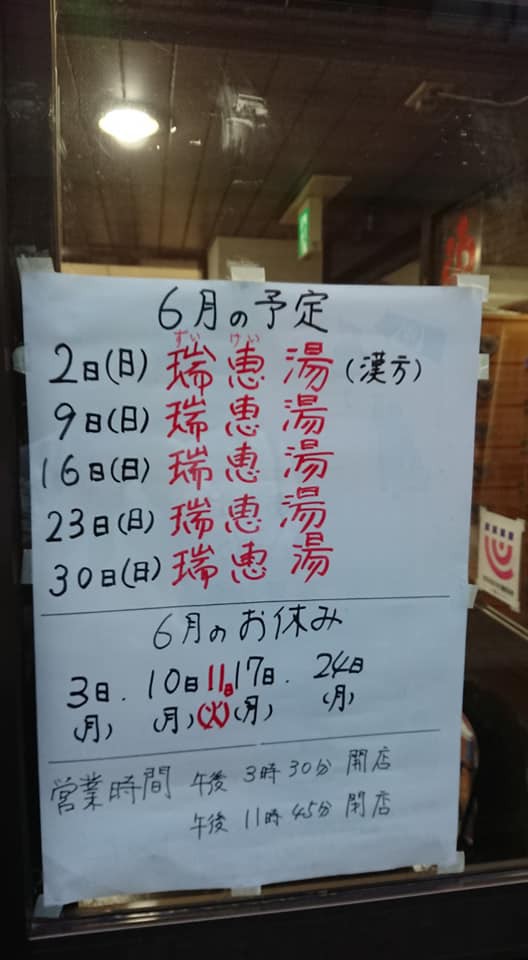 6月の予定
ずい けい
2日(日) 瑞恵湯(漢方)
9日(日) 瑞恵湯
16日(日) 瑞恵湯
23日(日) 瑞恵湯
30日(日) 瑞恵湯
6月のお休み
3日. 10日 11日 17日. 24日
(月) (月) (火) (月) (月)
営業時間 午後 3時30分 開店
午後 11時45分 閉店